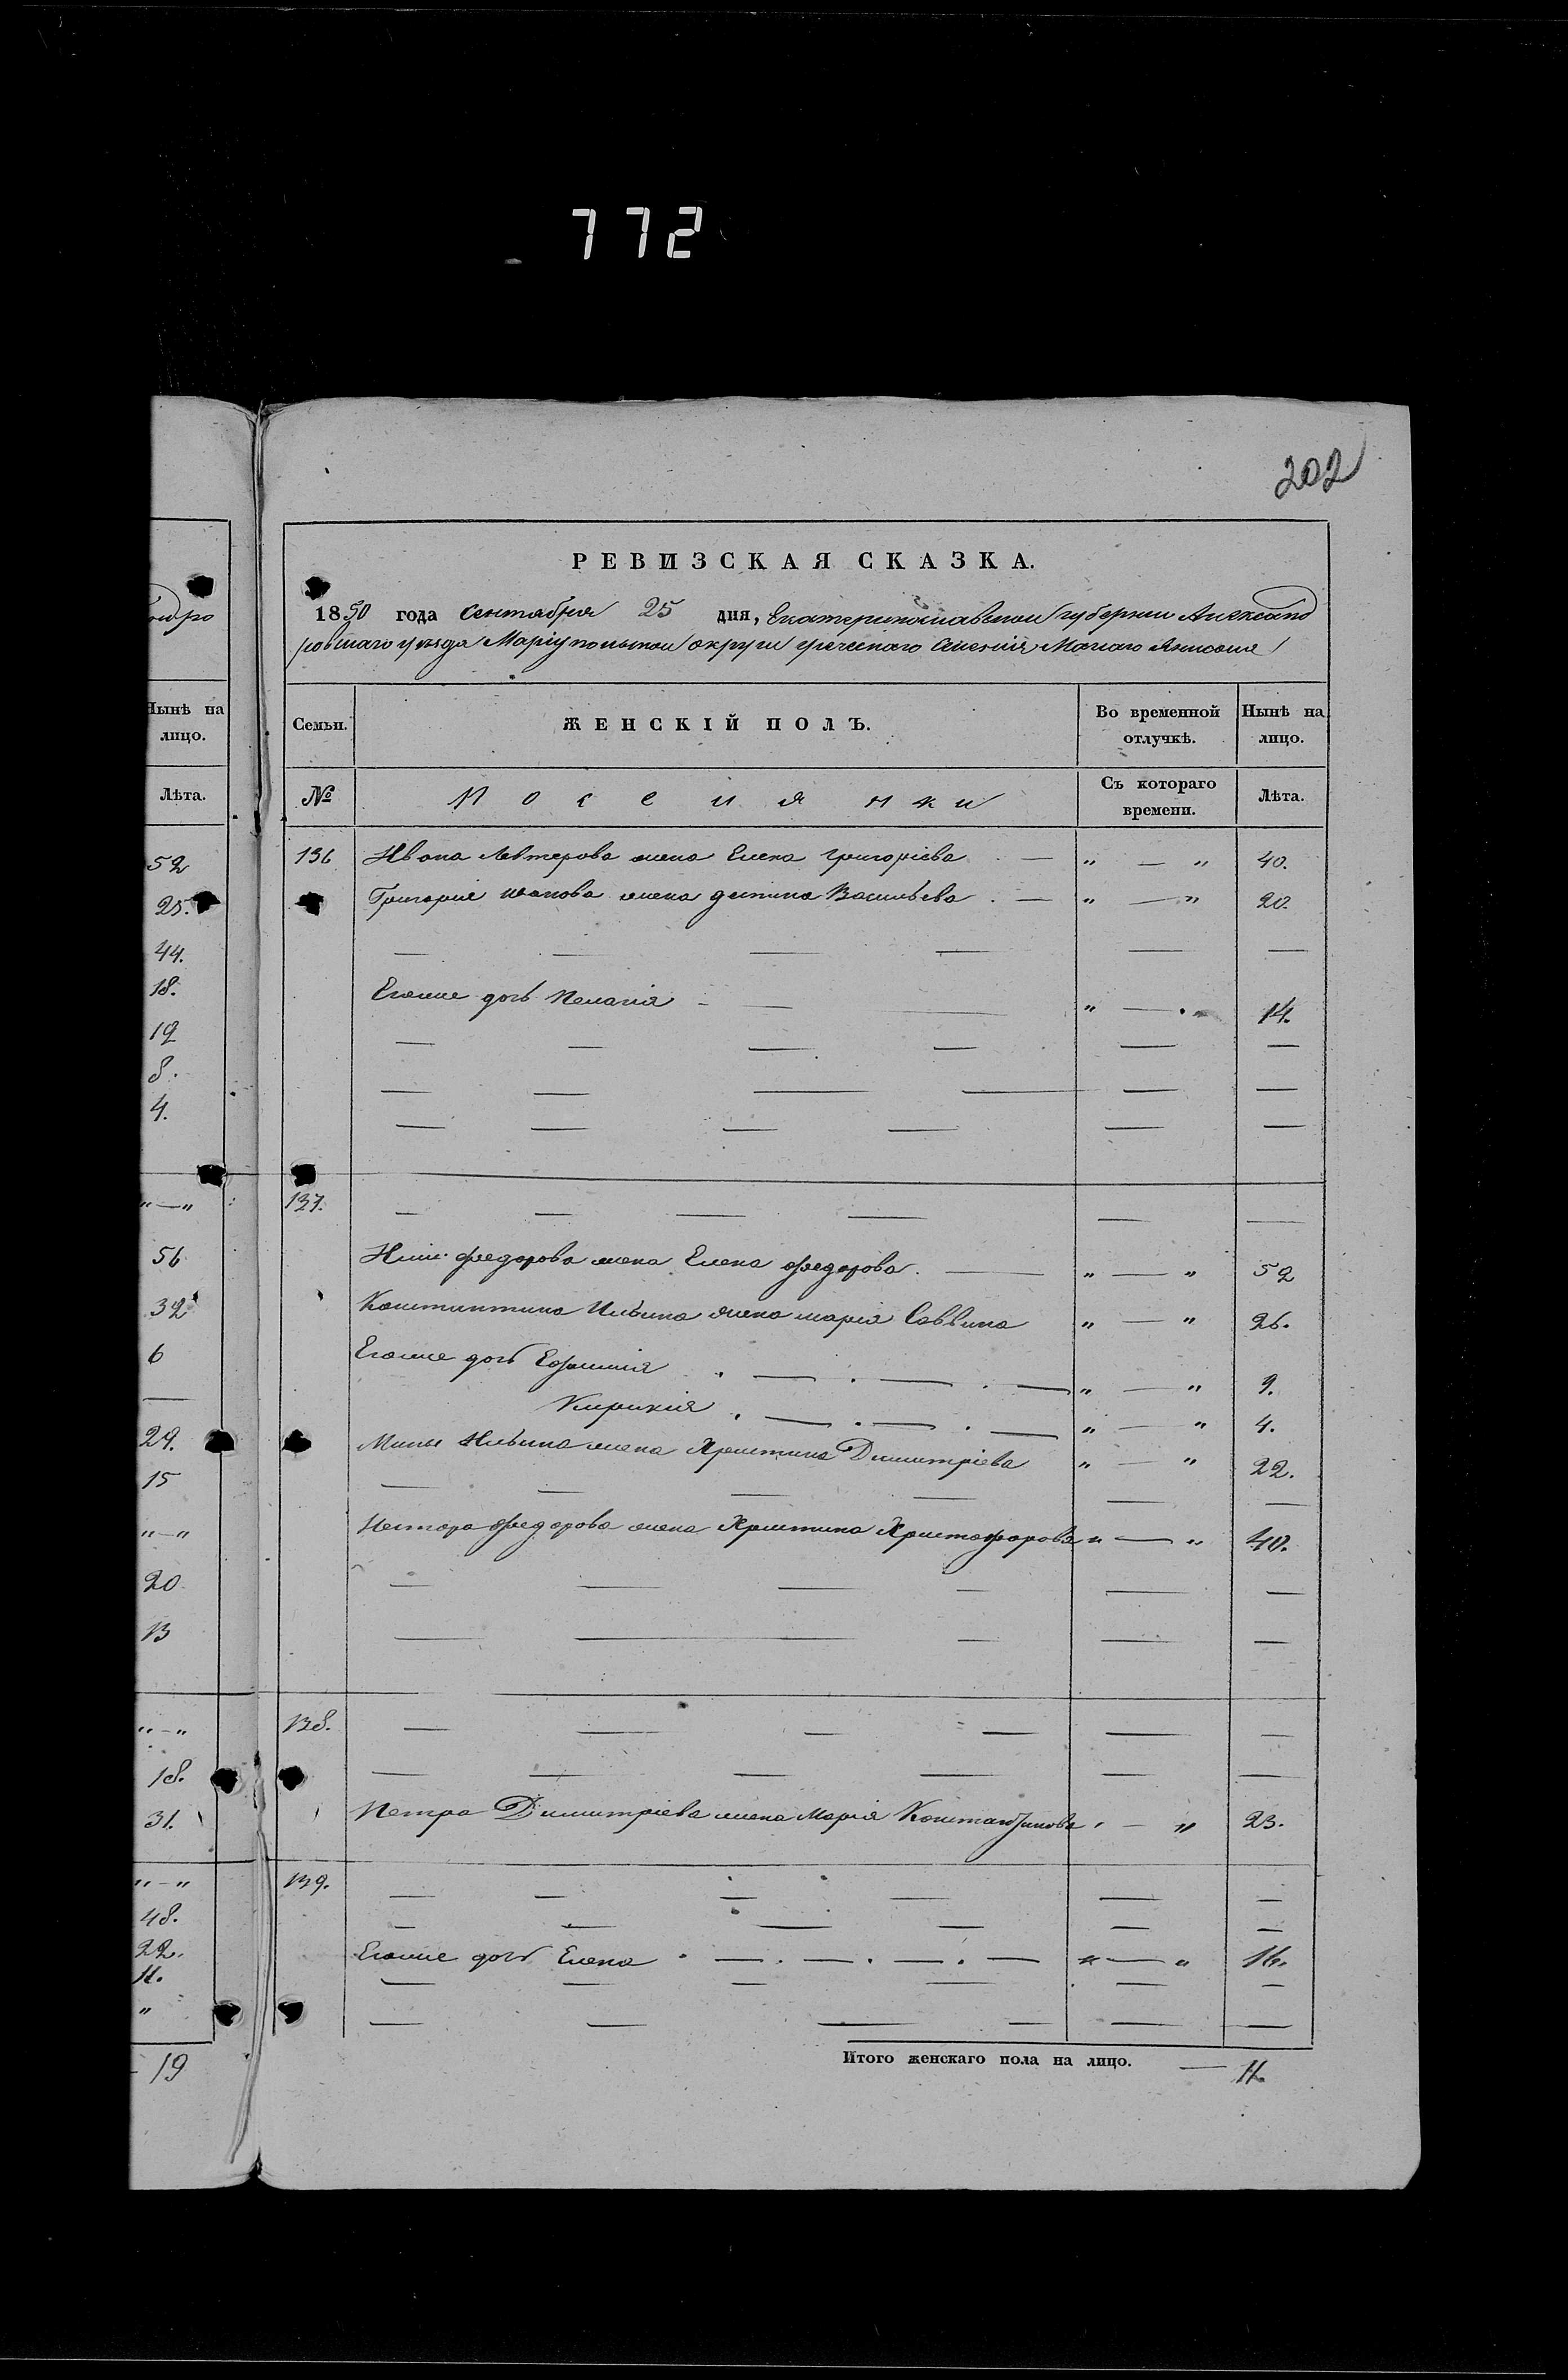 772
202
РЕВИЗСКАЯ СКАЗКА.
1850 года Сентября 25 дня, Екатеринославской губернии Александ
ровскаго уезда Маріупольской округи греческаго Селенія Малаго Янисоля
Семьи. ЖЕНСКІЙ ПОЛЪ. Во временной отлучкѣ. Нынѣ на лицо.
№ Поселянки Съ котораго времени. Лѣта.
136 Ивана Левтерова жена Елена Григорієва . — " — " 40.
Григорія Иванова жена Васильева . — " — " 20.
— — — — — —
Егоже дочь Пелагія - — " — " 14.
— — — — — —
— — — — — —
— — — — — —
137. — — — — — —
Ильи Федорова жена Елена Федорова. — " — " 52
Константина Ильина жена марія Саввина " — " 26.
Егоже дочь Ефимія . — . — . — " — " 9.
Кирикія . — . — . — " — " 4.
Мины Ильина жена Христина Димитріева " — " 22.
— — — — — —
Нестора Федорова жена Христина Христофорова " — " 40.
— — — — — —
— — — — — —
138. — — — — — —
— — — — — —
Петра Димитріева жена Марія Константинова " — " 23.
139. — — — — — —
— — — — — —
Егоже дочь Елена . — . — . — . — " — " 16.
— — — — — —
— — — — — —
Итого женскаго пола на лицо. — 11.
Нынѣ на
лицо.
Лѣта.
52
25.
44.
18.
12
8.
4.
"—"
56
32
6
—
29.
15
"—"
20
13
"—"
18.
31.
"—"
48.
22.
11.
"
19